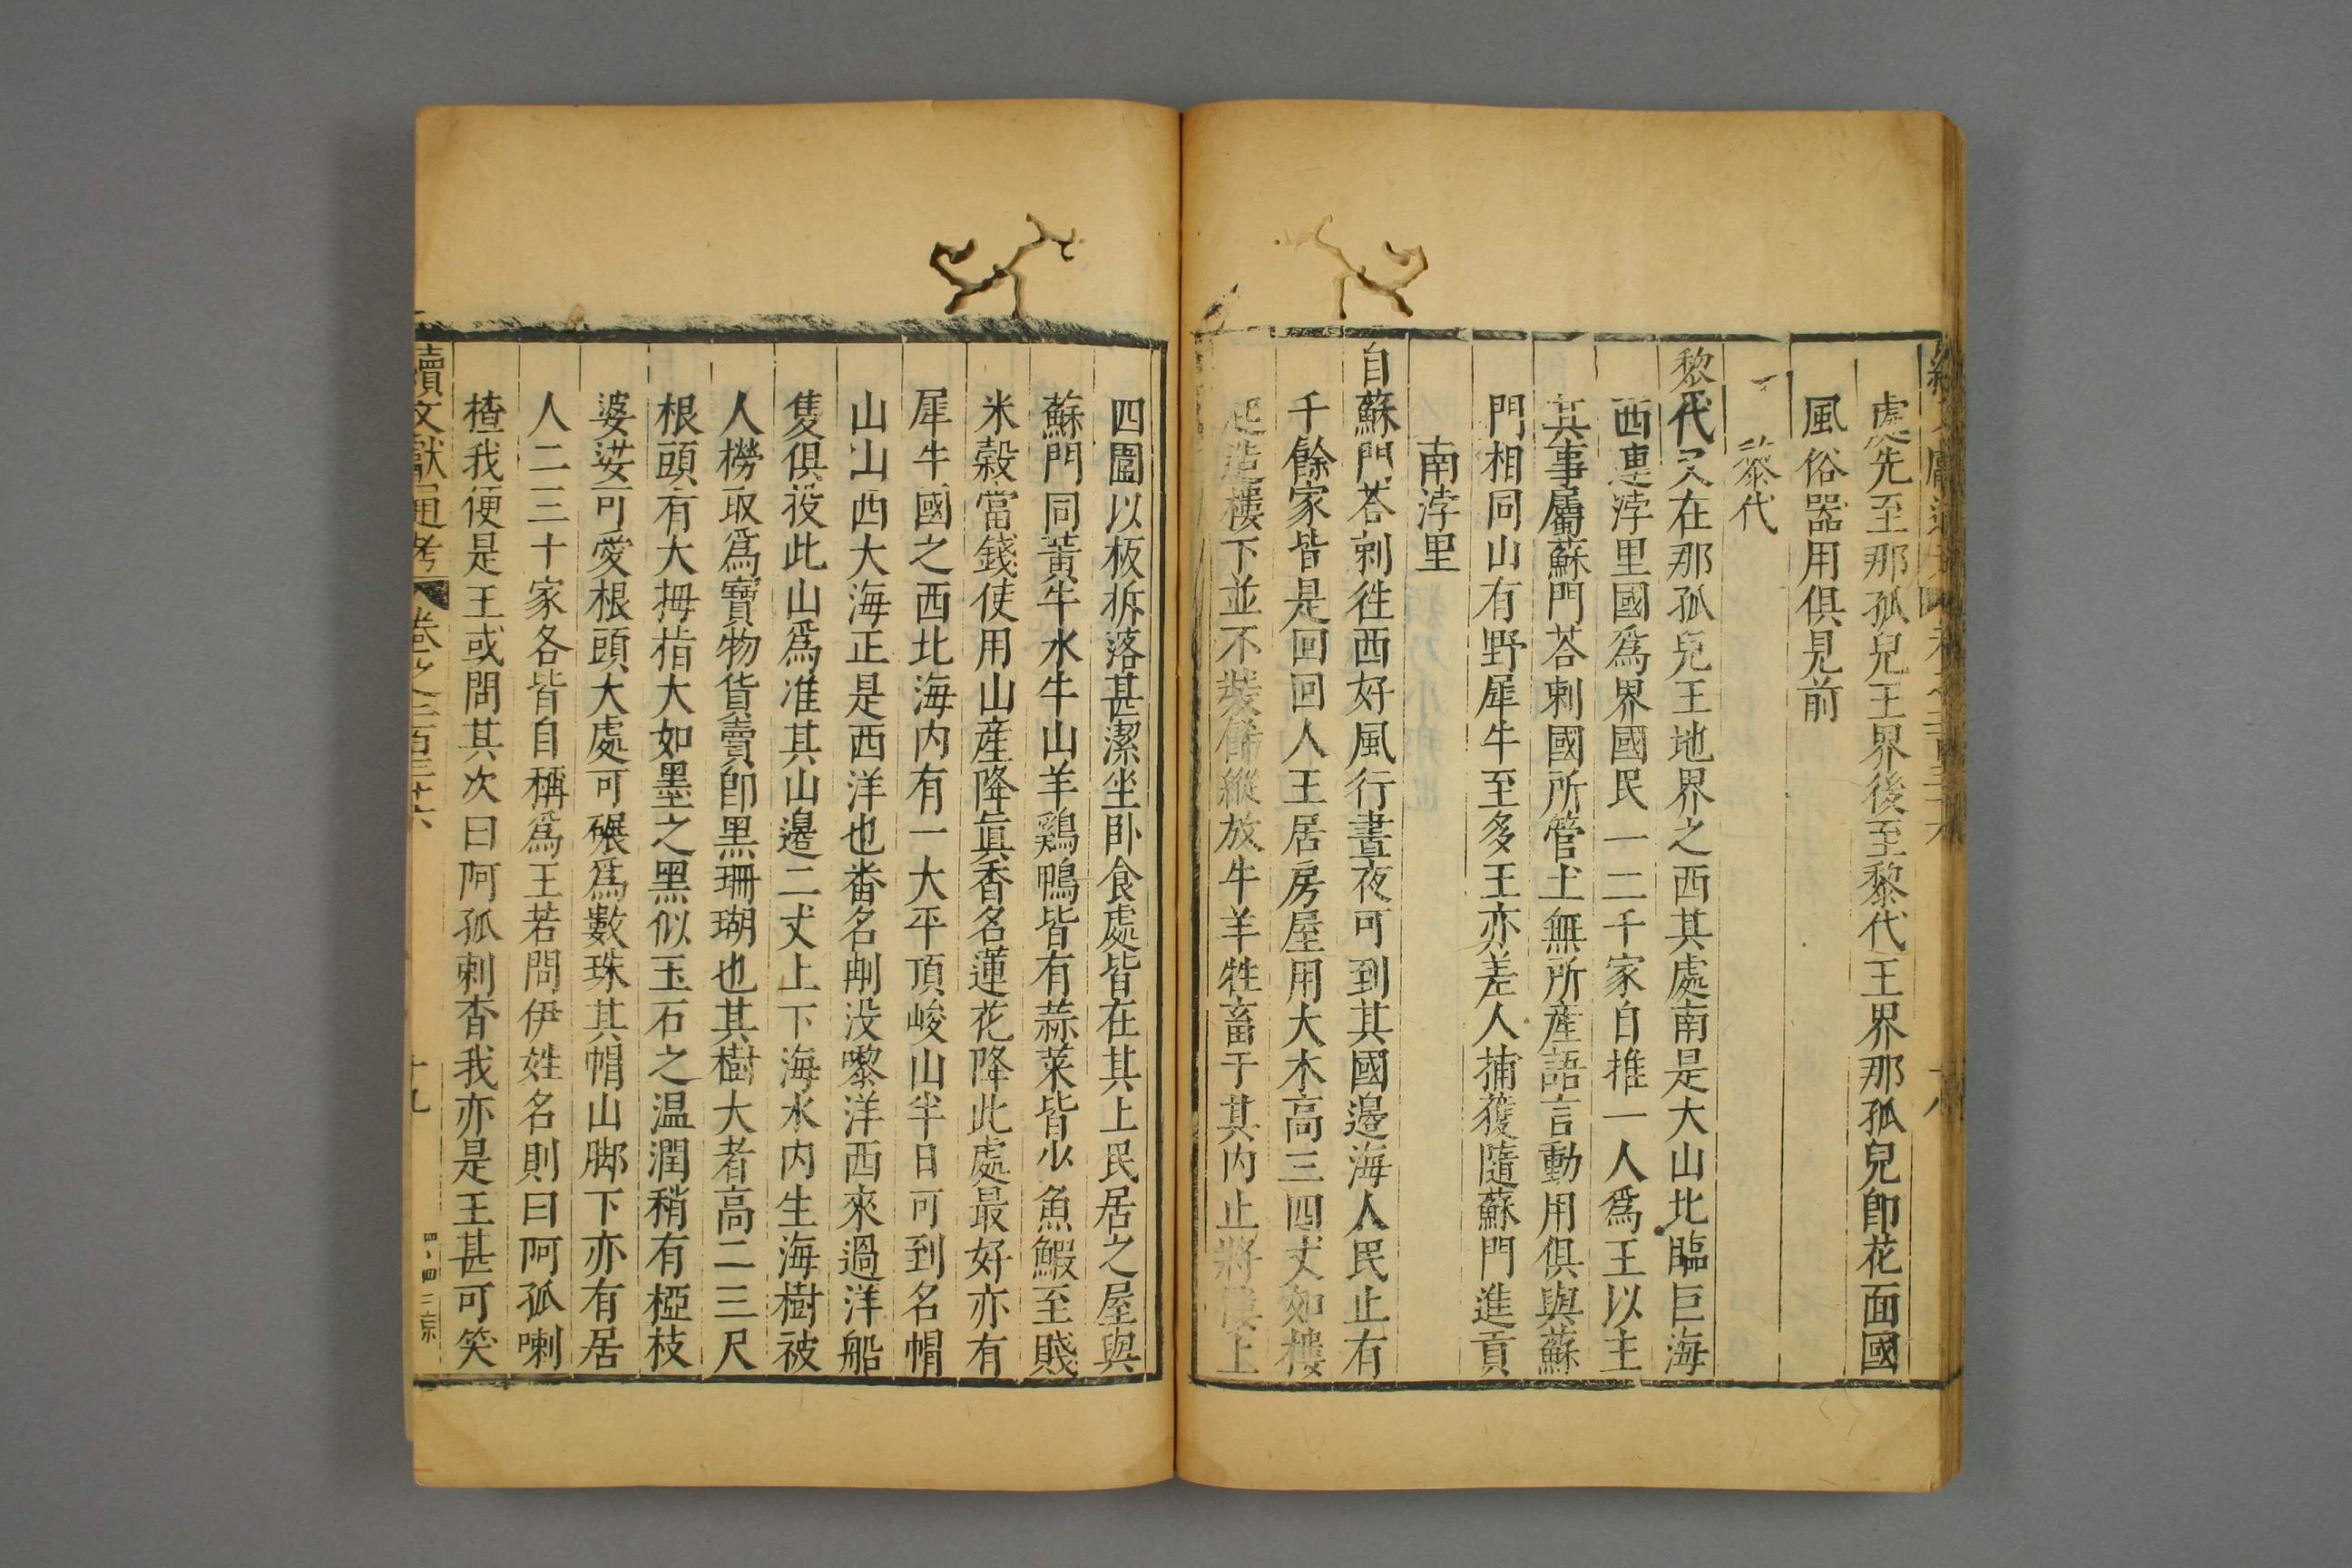 處先至那孤兒王界後至黎代王界那孤兒卽花面國
風俗器用俱見前
黎代
黎代又在那孤兒王地界之西其處南是大山北臨巨海
西連浡里國爲界國民一二千家自推一人爲王以主
其事屬蘇門荅剌國所管土無所產語言動用俱與蘇
門相同山有野犀牛至多王亦差人捕獲隨蘇門進貢
南浡里
自蘇門荅剌徃西好風行晝夜可到其國邊海人民止有
千餘家皆是回回人王居房屋用大木高三四丈如樓
起造樓下並不裝俻縱放牛羊牲畜于其內止將樓上
四圍以板拆落甚潔坐卧食處皆在其上民居之屋與
蘇門同黃牛水牛山羊鷄鴨皆有蒜菜皆少魚鰕至賤
米榖當錢使用山產降眞香名蓮花降此處最好亦有
犀牛國之西北海内有一大平頂峻山半日可到名帽
山山西大海正是西洋也番名㓮没嚟洋西來過洋船
隻俱投此山爲准其山邊二丈上下海水内生海樹被
人撈取爲寶物貨賣卽黑珊瑚也其樹大者高二三尺
根頭有大拇指大如墨之黑似玉石之温潤稍有椏枝
婆娑可愛根頭大處可碾爲數珠其帽山脚下亦有居
人二三十家各皆自稱爲王若問伊姓名則曰阿孤喇
楂我便是王或問其次曰阿孤剌楂我亦是王甚可笑
續文獻通考 卷之二百三十六 十九